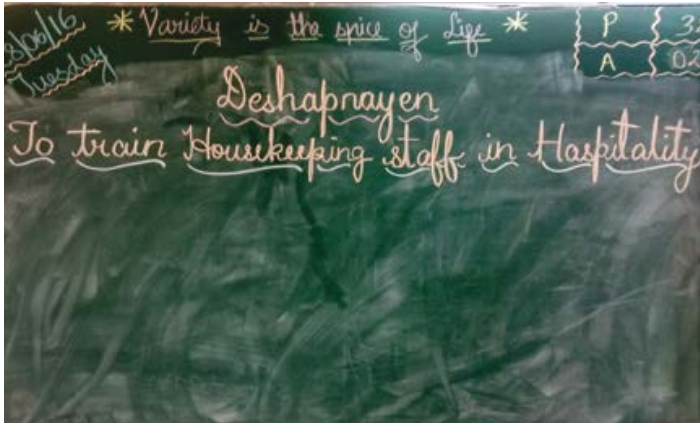 8/06/16
Tuesday
* Variety is the spice of Life *
P 32
A 02
Deshapnayen
To train Housekeeping staff in Haspitality